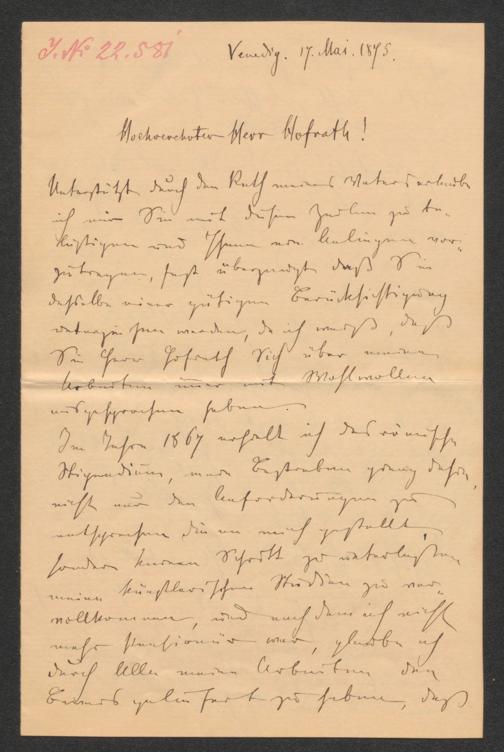 J. No 22.581
Venedig. 17. Mai. 1875.
Hochverehrter Herr Hofrath!
Unterstützt durch den Rath meines Vaters erlaube
ich mir Sie mit diesen Zeilen zu be-
lästigen und Ihnen ein Anliegen vor-
zutragen, fest überzeugt daß Sie
dasselbe einer gütigen Berücksichtigung
unterziehen werden, da ich weiß, daß
Sie Herr Hofrath Sich über meine
Arbeiten immer mit Wohlwollen
ausgesprochen haben.
Im Jahre 1867 erhielt ich das römische
Stipendium, mein Bestreben ging dahin,
nicht nur den Anforderungen zu
entsprechen die an mich gestellt,
sondern keinen Schritt zu unterlassen
meine künstlerischen Studien zu ver-
vollkommnen, und nachdem ich nicht
mehr Pensionär war, glaube ich
durch Alle meine Arbeiten den
Beweis geliefert zu haben, daß